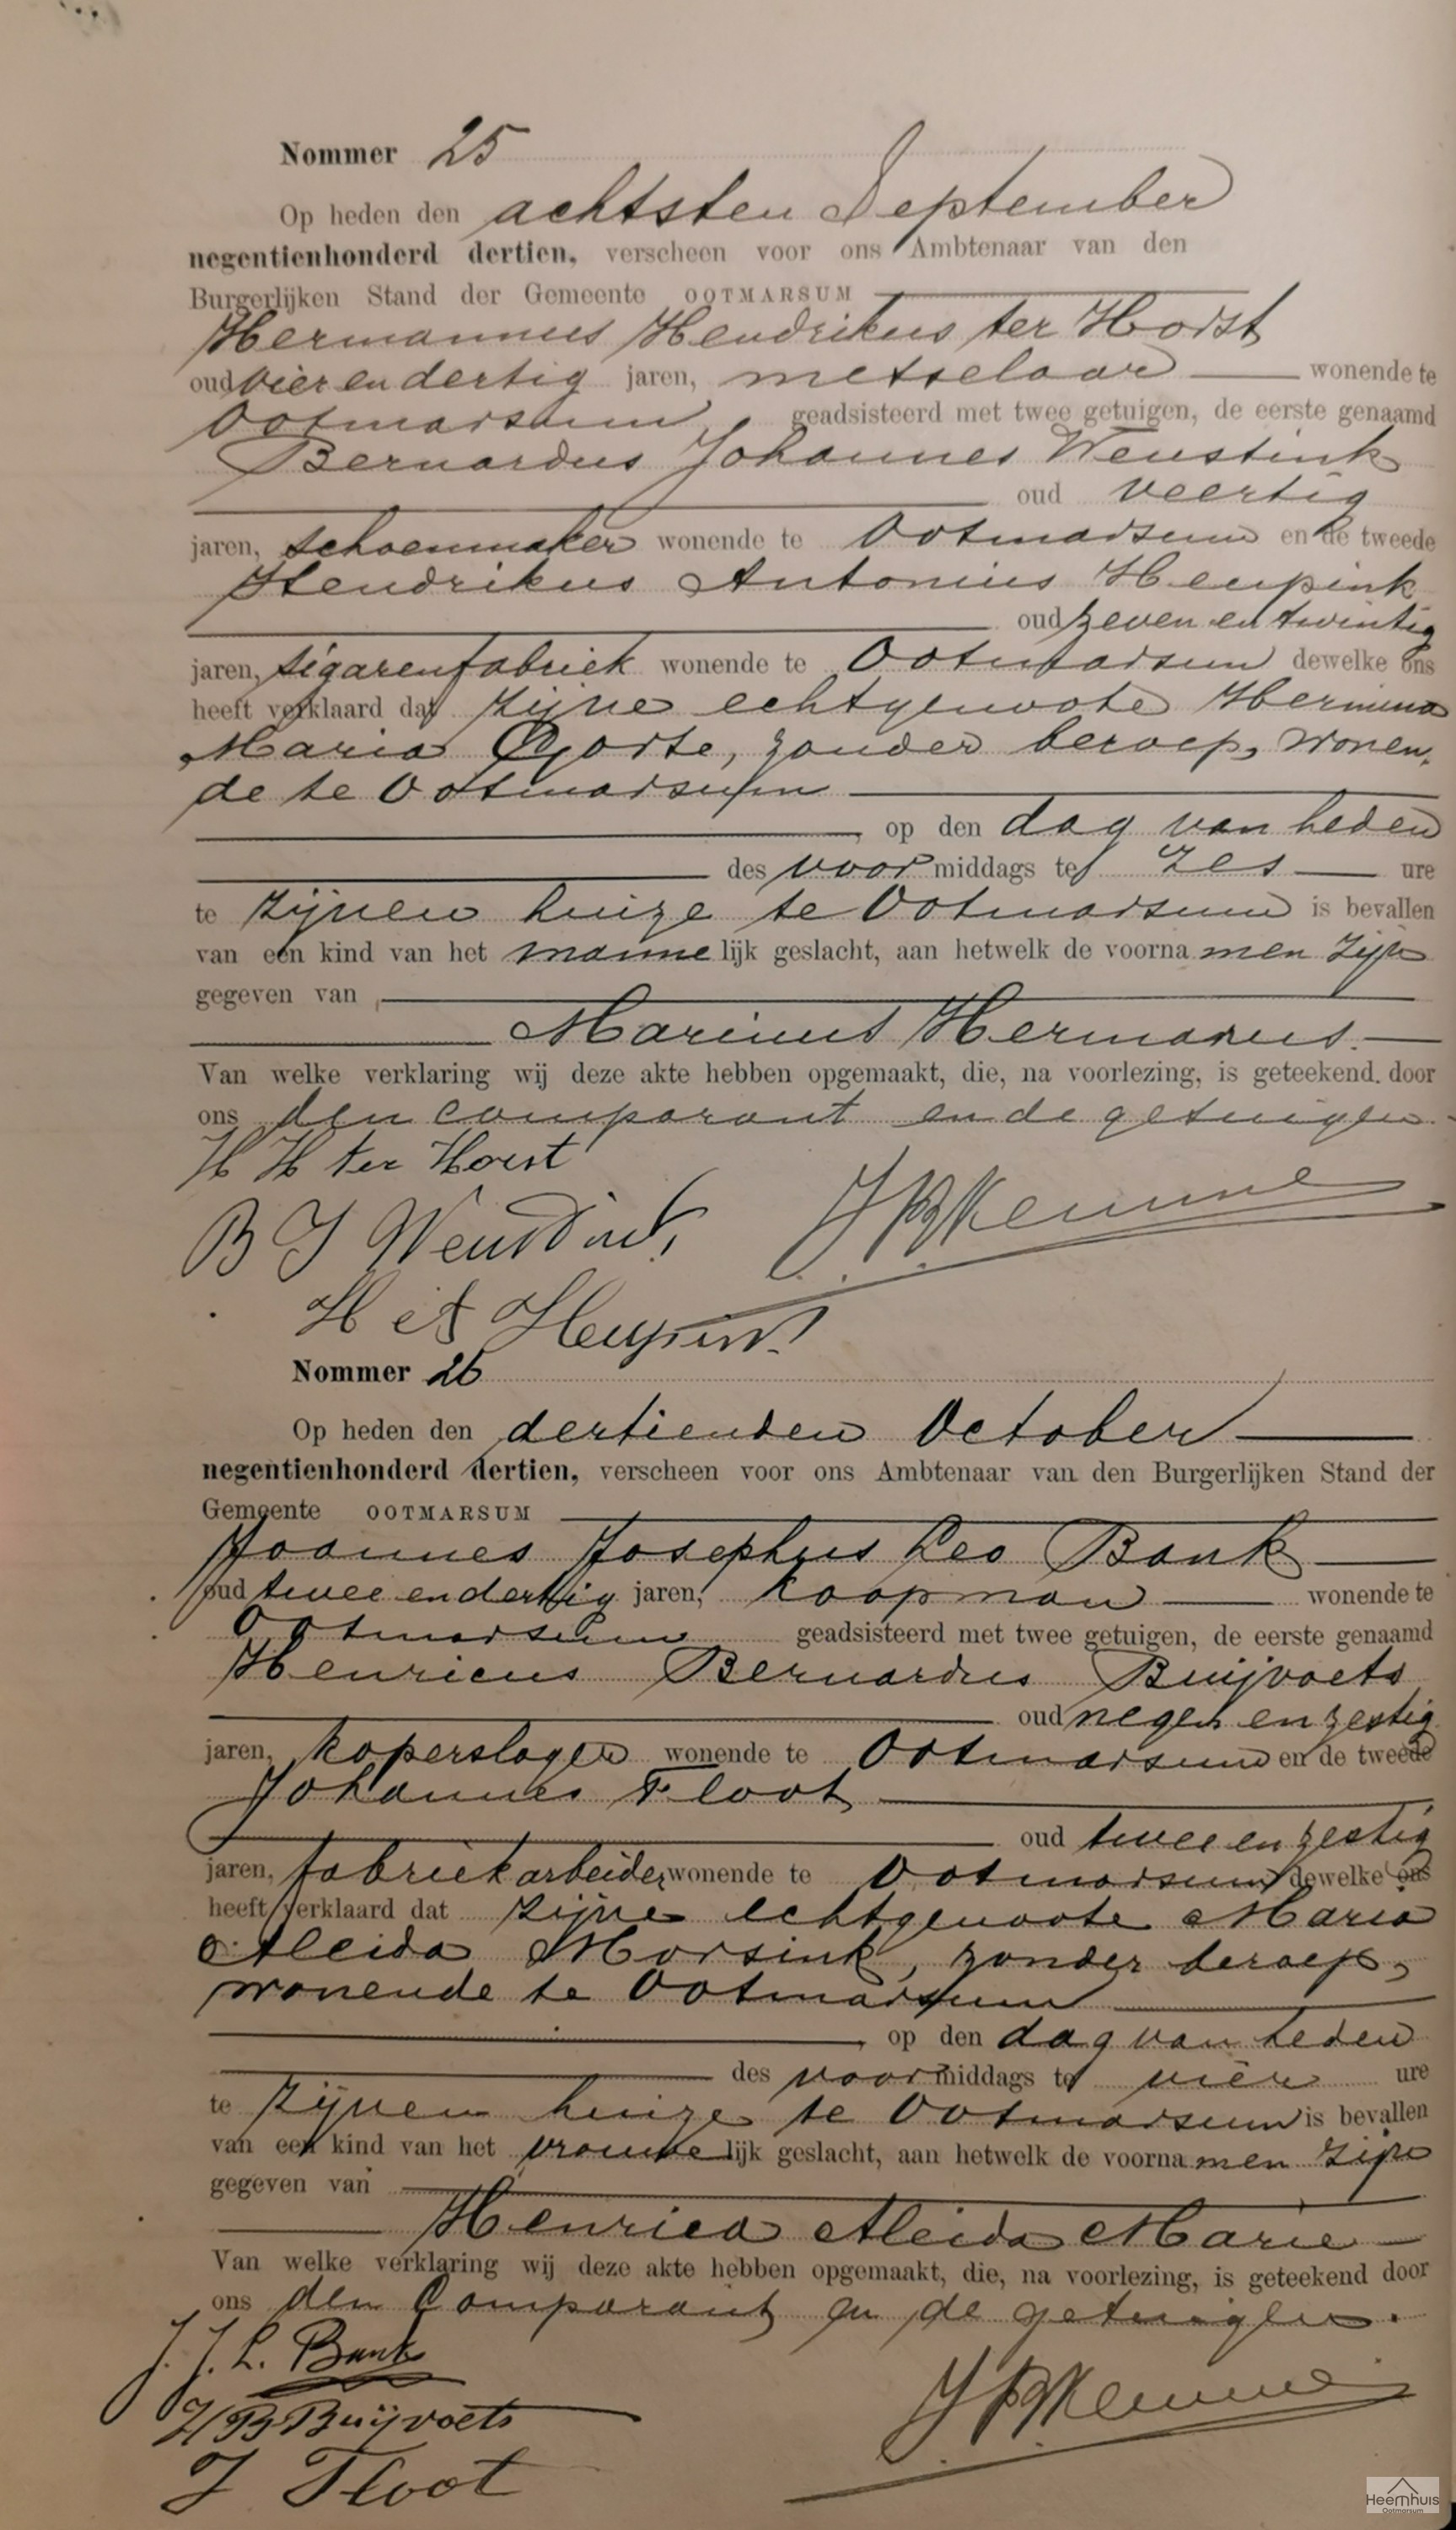 Nommer 25
Op heden den achtsten September
negentienhonderd dertien, verscheen voor ons Ambtenaar van den
Burgerlijken Stand der Gemeente OOTMARSUM
Hermannus Hendrikus ter Horst
oud vier en dertig jaren, metselaar wonende te
Ootmarsum geadsisteerd met twee getuigen, de eerste genaamd
Bernardus Johannes Weustink
oud veertig
jaren, schoenmaker wonende te Ootmarsum en de tweede
Hendrikus Antonius Heupink
oud zeven en twintig
jaren, sigarenfabriek wonende te Ootmarsum dewelke ons
heeft verklaard dat zijne echtgenoote Hermina
Maria Gorte, zonder beroep, wonen-
de te Ootmarsum
, op den dag van heden
des voormiddags te zes ure
te zijnen huize te Ootmarsum is bevallen
van een kind van het mannelijk geslacht, aan hetwelk de voornamen zijn
gegeven van
Marinus Hermanus.
Van welke verklaring wij deze akte hebben opgemaakt, die, na voorlezing, is geteekend door
ons den comparant en de getuigen.
H H ter Horst
B J Weustink JBKemme
H A Heupink
Nommer 26
Op heden den dertienden October
negentienhonderd dertien, verscheen voor ons Ambtenaar van den Burgerlijken Stand der
Gemeente OOTMARSUM
Joannes Josephus Leo Bank
oud twee en dertig jaren, koopman wonende te
Ootmarsum geadsisteerd met twee getuigen, de eerste genaamd
Henricus Bernardus Buijvoets
oud negen en zestig
jaren, koperslager wonende te Ootmarsum en de tweede
Johannes Floot
oud twee en zestig
jaren, fabriekarbeider, wonende te Ootmarsum dewelke ons
heeft verklaard dat zijne echtgenoote Maria
Aleida Morsink, zonder beroep,
wonende te Ootmarsum
, op den dag van heden
des voormiddags te vier ure
te zijnen huize te Ootmarsum is bevallen
van een kind van het vrouwelijk geslacht, aan hetwelk de voornamen zijn
gegeven van
Henrica Aleida Marie
Van welke verklaring wij deze akte hebben opgemaakt, die, na voorlezing, is geteekend door
ons den Comparant en de getuigen.
J. J. L. Bank
HB Buijvoets JBKemme
J Floot
Heemhuis
Ootmarsum